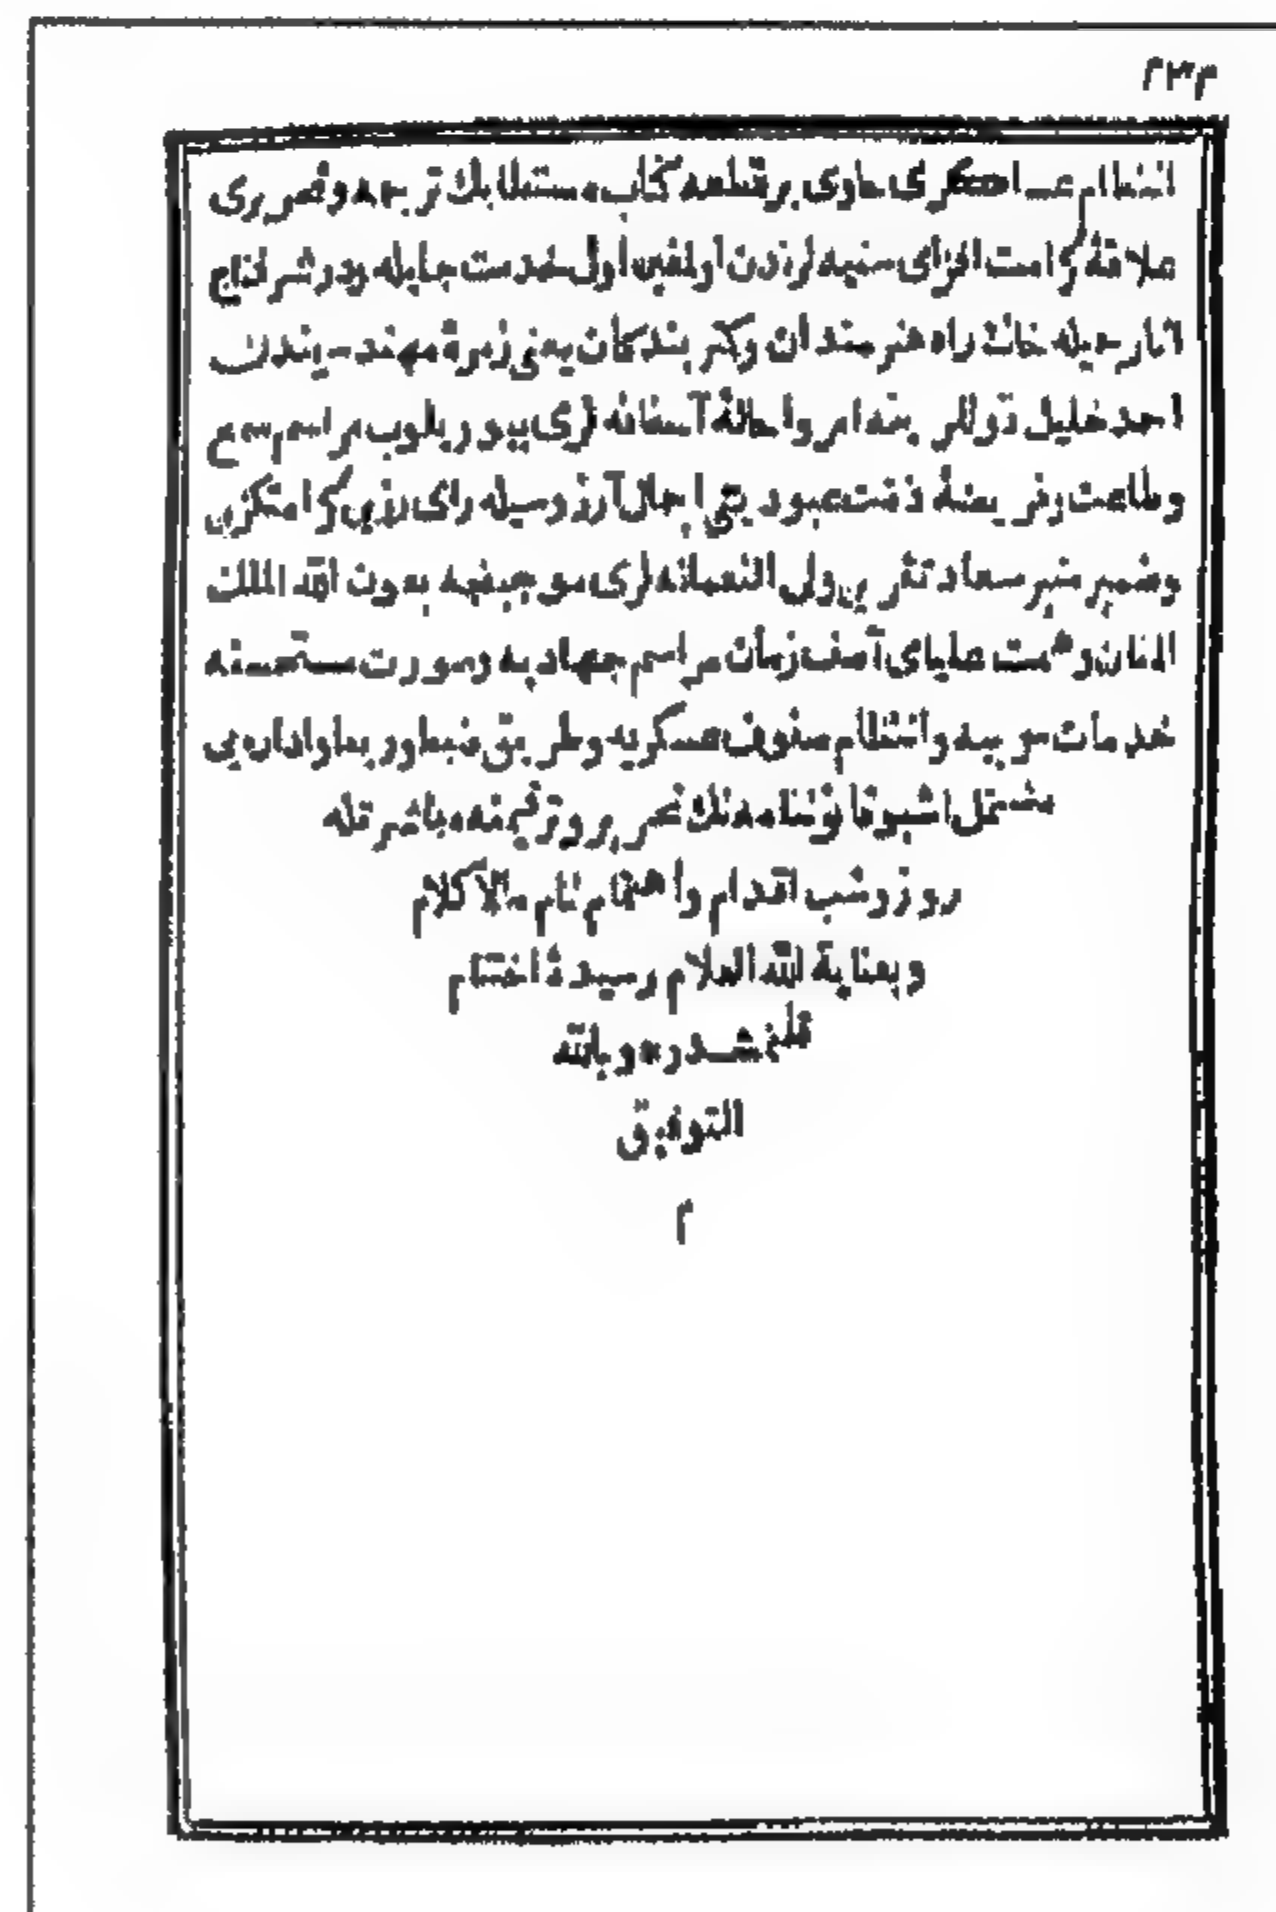 انتظام عساكرى حاوى بر قطعه كتاب مستطابك ترجمه وتحريرى
علاقۀ كرامت افزاى سنيه لرندن اولمغين اول خدمت جليله ودر شرفتاج
خاك راه هنرمندان وكمتر بندكان يعنى زمرۀ مهندسيندن
احمد خليل قوللرينه امر واحالۀ آصفانه لرى بيوريلوب مراسم سمع
وطاعت وفريضۀ ذمت عبوديتى اجمال آرزوسيله راى رزين كرامتكزين
وضمير منير سعادتقرين ولى النعمانه لرى موجبنجه بعون الله الملك
المنان وهمت علياى آصف زمان مراسم جهاديه وصورت مستحسنه
خدمات حربيه وانتظام صفوف عسكريه وطريق ضبط وربط واداره يى
مشتمل اشبو قانوننامه نك تحرير وترقيمنه مباشرتله
روز وشب اقدام واهتمام تام مالاكلام
وبعناية الله العلام رسيدۀ اختتام
قلنمشدر وبالله
التوفيق
م